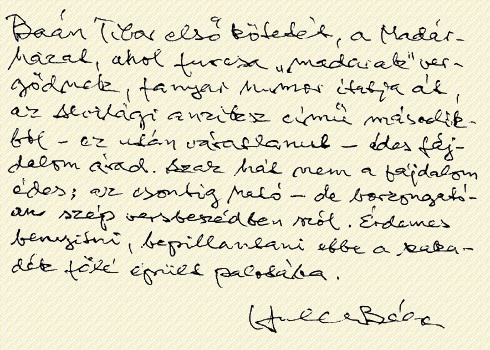 Baán Tibor első kötetét, a Madár-
házat, ahol furcsa „madarak" ver-
gődnek, fanyar humor itatja át,
az alvilági anziksz című második-
ból – ez után váratlanul – édes fáj-
dalom árad. Azaz hát nem a fájdalom
édes; az csontig ható – de borzongató-
an szép versbeszédben szól. Érdemes
benyitni, bepillantani ebbe a szaka-
dék fölé épült palotába.
Béla